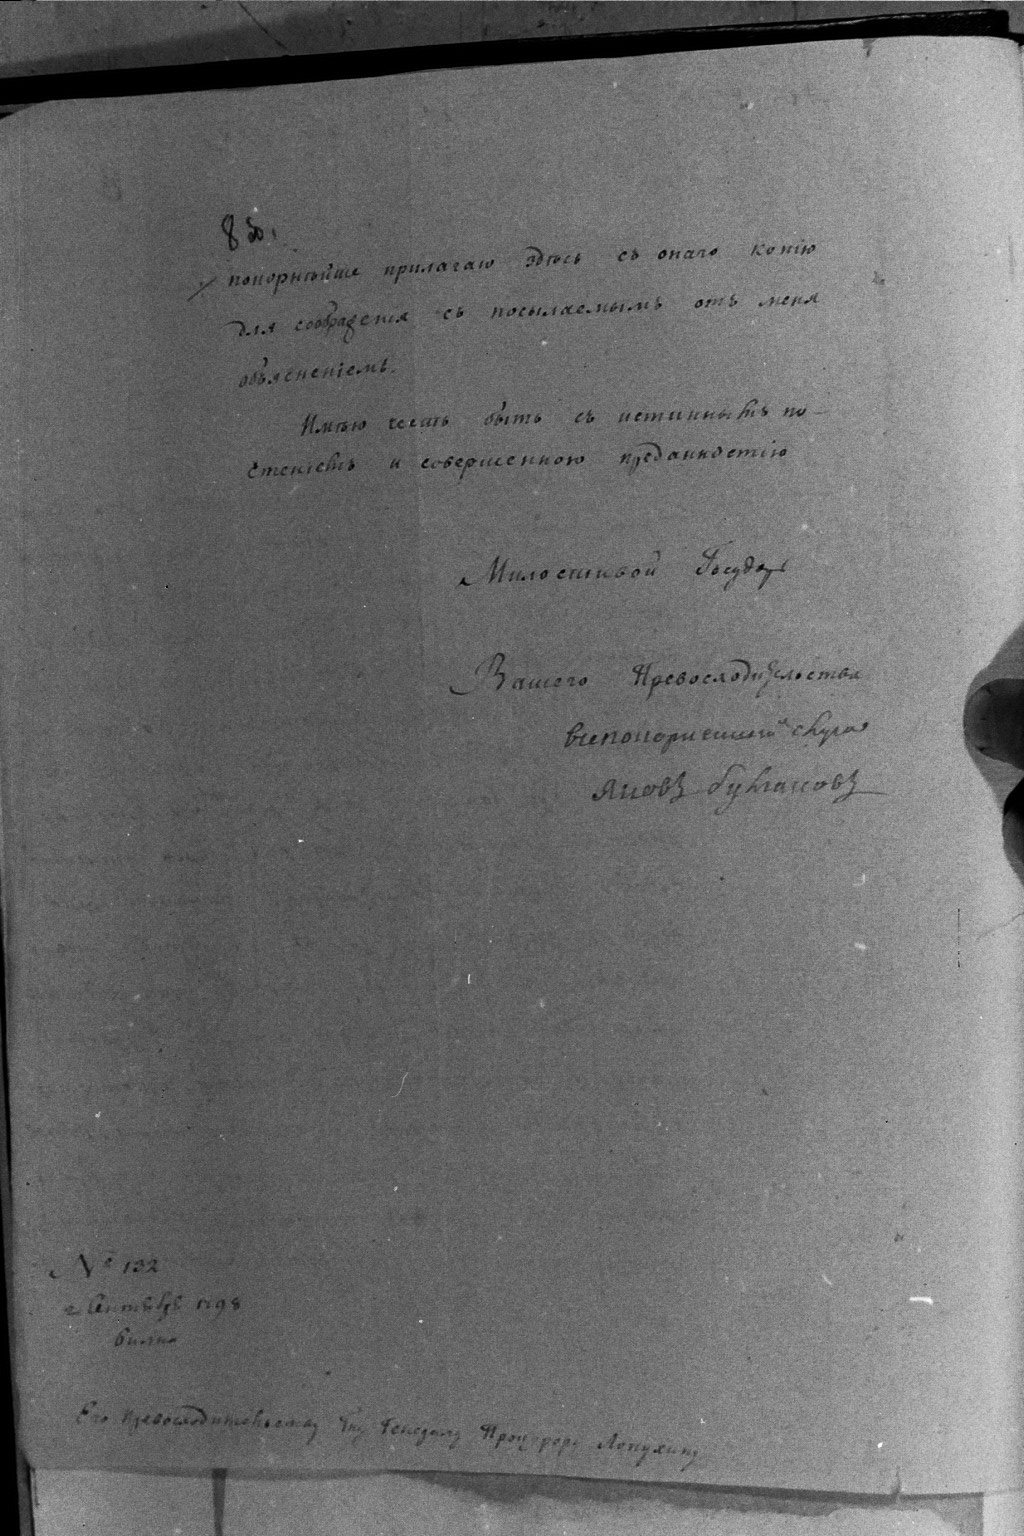 8 об.
покорнѣйше прилагаю здѣсь съ онаго копію
для соображенія съ посылаемымъ отъ меня
объясненіемъ.
Имѣю честь быть съ истиннымъ по-
чтеніемъ и совершенною преданностію
Милостивой Государь
Вашего Превосходительства
всепокорнѣйшій слуга
Яковъ Булгаковъ
№ 132
2 Сентября 1798
Вилна
Его Превосходительству Гну Генералу Прокурору Лопухину